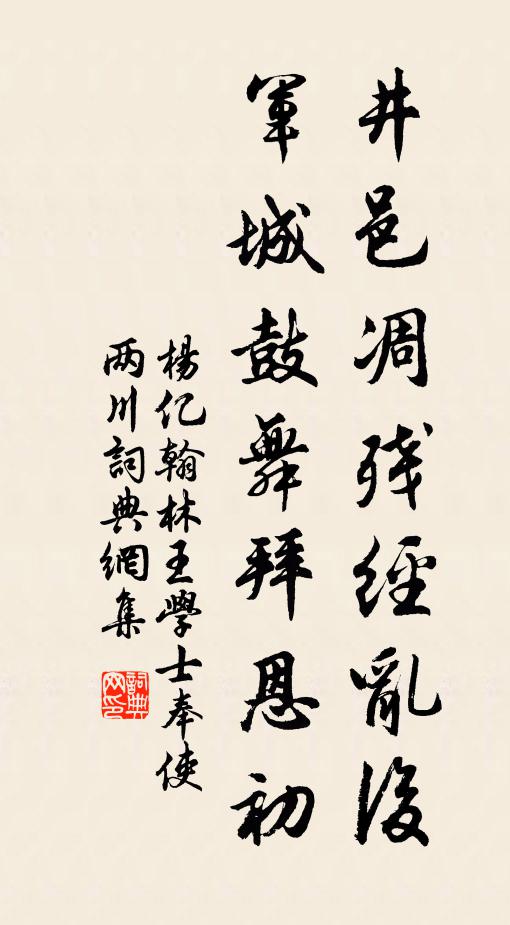 井邑凋残經亂後
軍城鼓舞拜恩初
楊亿翰林王學士奉使
两川詞典網集
詞典网印